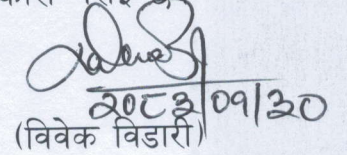 २०८३/०१/३०
(विवेक विडारी)